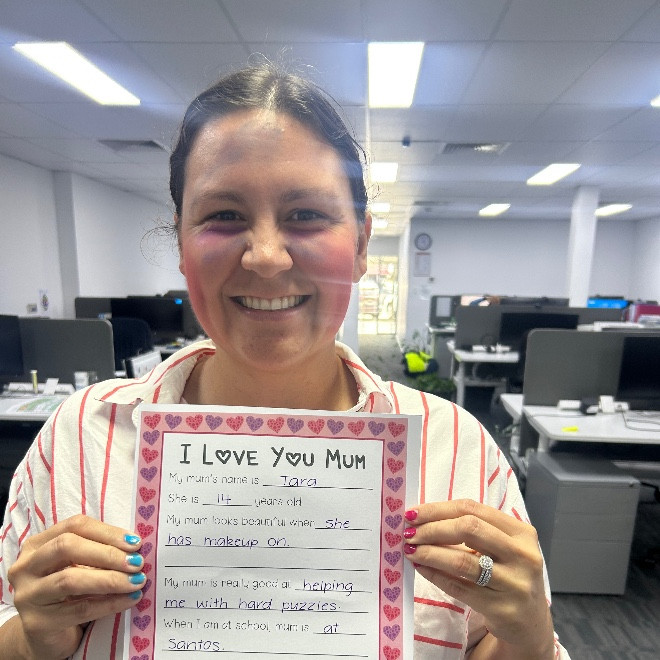 I LOVE YOU MUM
My mum's name is Tara
She is 14 years old.
My mum looks beautiful when she
has makeup on.
My mum is really good at helping
me with hard puzzies.
When I am at school, mum is at
Santos.